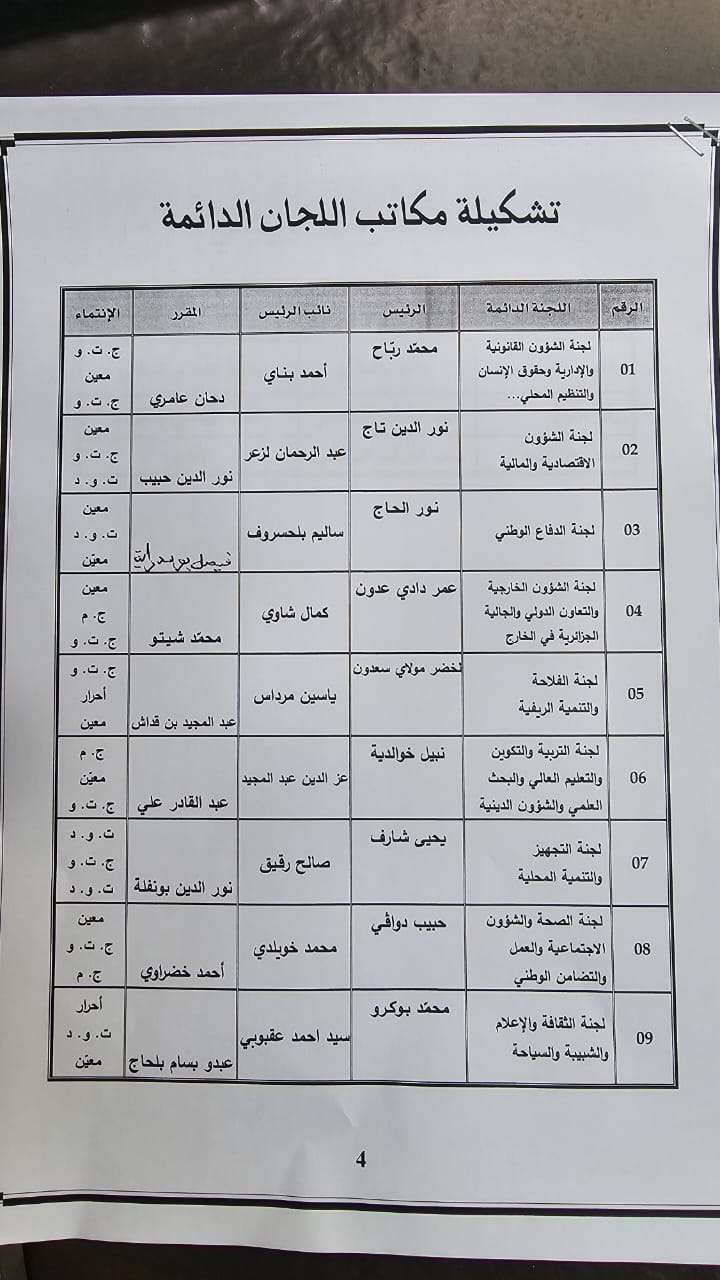 تشكيلة مكاتب اللجان الدائمة
الرقم اللجنة الدائمة الرئيس نائب الرئيس المقرر الإنتماء
01
لجنة الشؤون القانونية
والإدارية وحقوق الإنسان
والتنظيم المحلي...
محمّد ربّاح
أحمد بناي
دحان عامري
ج. ت. و
معين
ج. ت. و
02
لجنة الشؤون
الاقتصادية والمالية
نور الدين تاج
عبد الرحمان لزعر
نور الدين حبيب
معين
ج. ت. و
ت. و. د
03
لجنة الدفاع الوطني
نور الحاج
ساليم بلحسروف
فيصل بوسدراية
معين
ت. و. د
معيّن
04
لجنة الشؤون الخارجية
والتعاون الدولي والجالية
الجزائرية في الخارج
عمر دادي عدون
كمال شاوي
محمّد شيتو
معين
ج. م
ج. ت. و
05
لجنة الفلاحة
والتنمية الريفية
لخضر مولاي سعدون
ياسين مرداس
عبد المجيد بن قداش
ج. ت. و
أحرار
معين
06
لجنة التربية والتكوين
والتعليم العالي والبحث
العلمي والشؤون الدينية
نبيل خوالدية
عز الدين عبد المجيد
عبد القادر علي
ج. م
معيّن
ج. ت. و
07
لجنة التجهيز
والتنمية المحلية
يحيى شارف
صالح رقيق
نور الدين بونفلة
ت. و. د
ج. ت. و
ت. و. د
08
لجنة الصحة والشؤون
الاجتماعية والعمل
والتضامن الوطني
حبيب دواقي
محمد خويلدي
أحمد خضراوي
معين
ج. ت. و
ج. م
09
لجنة الثقافة والإعلام
والشبيبة والسياحة
محمّد بوكرو
سيد احمد عقبوبي
عبدو بسام بلحاج
أحرار
ت. و. د
معيّن
4